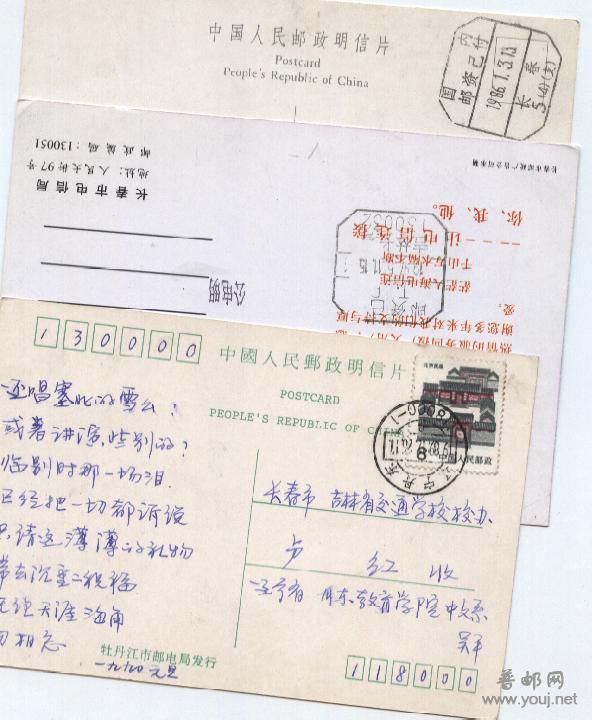 中国人民邮政明信片
Postcard
People's Republic of China
国内
邮资已付
1986.1.3.13
长春
5(4)(支)
长春市电信局
地址:人民大街97号
邮政编码:130051
你、我、他。
让电信连接
千山万水隔不断
茫茫人海电信连
爱。
谢您多年来对我们的支持与厚
130000
中國人民郵政明信片
POSTCARD
PEOPLE'S REPUBLIC OF CHINA
北京民居
8
中国人民邮政
还唱塞北的雪么?
或者讲演些别的?
临别时那一场泪
已经把一切都诉说
请这薄薄的礼物
带去沉重的祝福
天涯海角
勿相忘
一九九〇元旦
长春市 吉林省交通学校校办
卢 红 收
辽宁省 丹东教育学院中文系
118000
牡丹江市邮电局发行
普邮网
www.youj.net